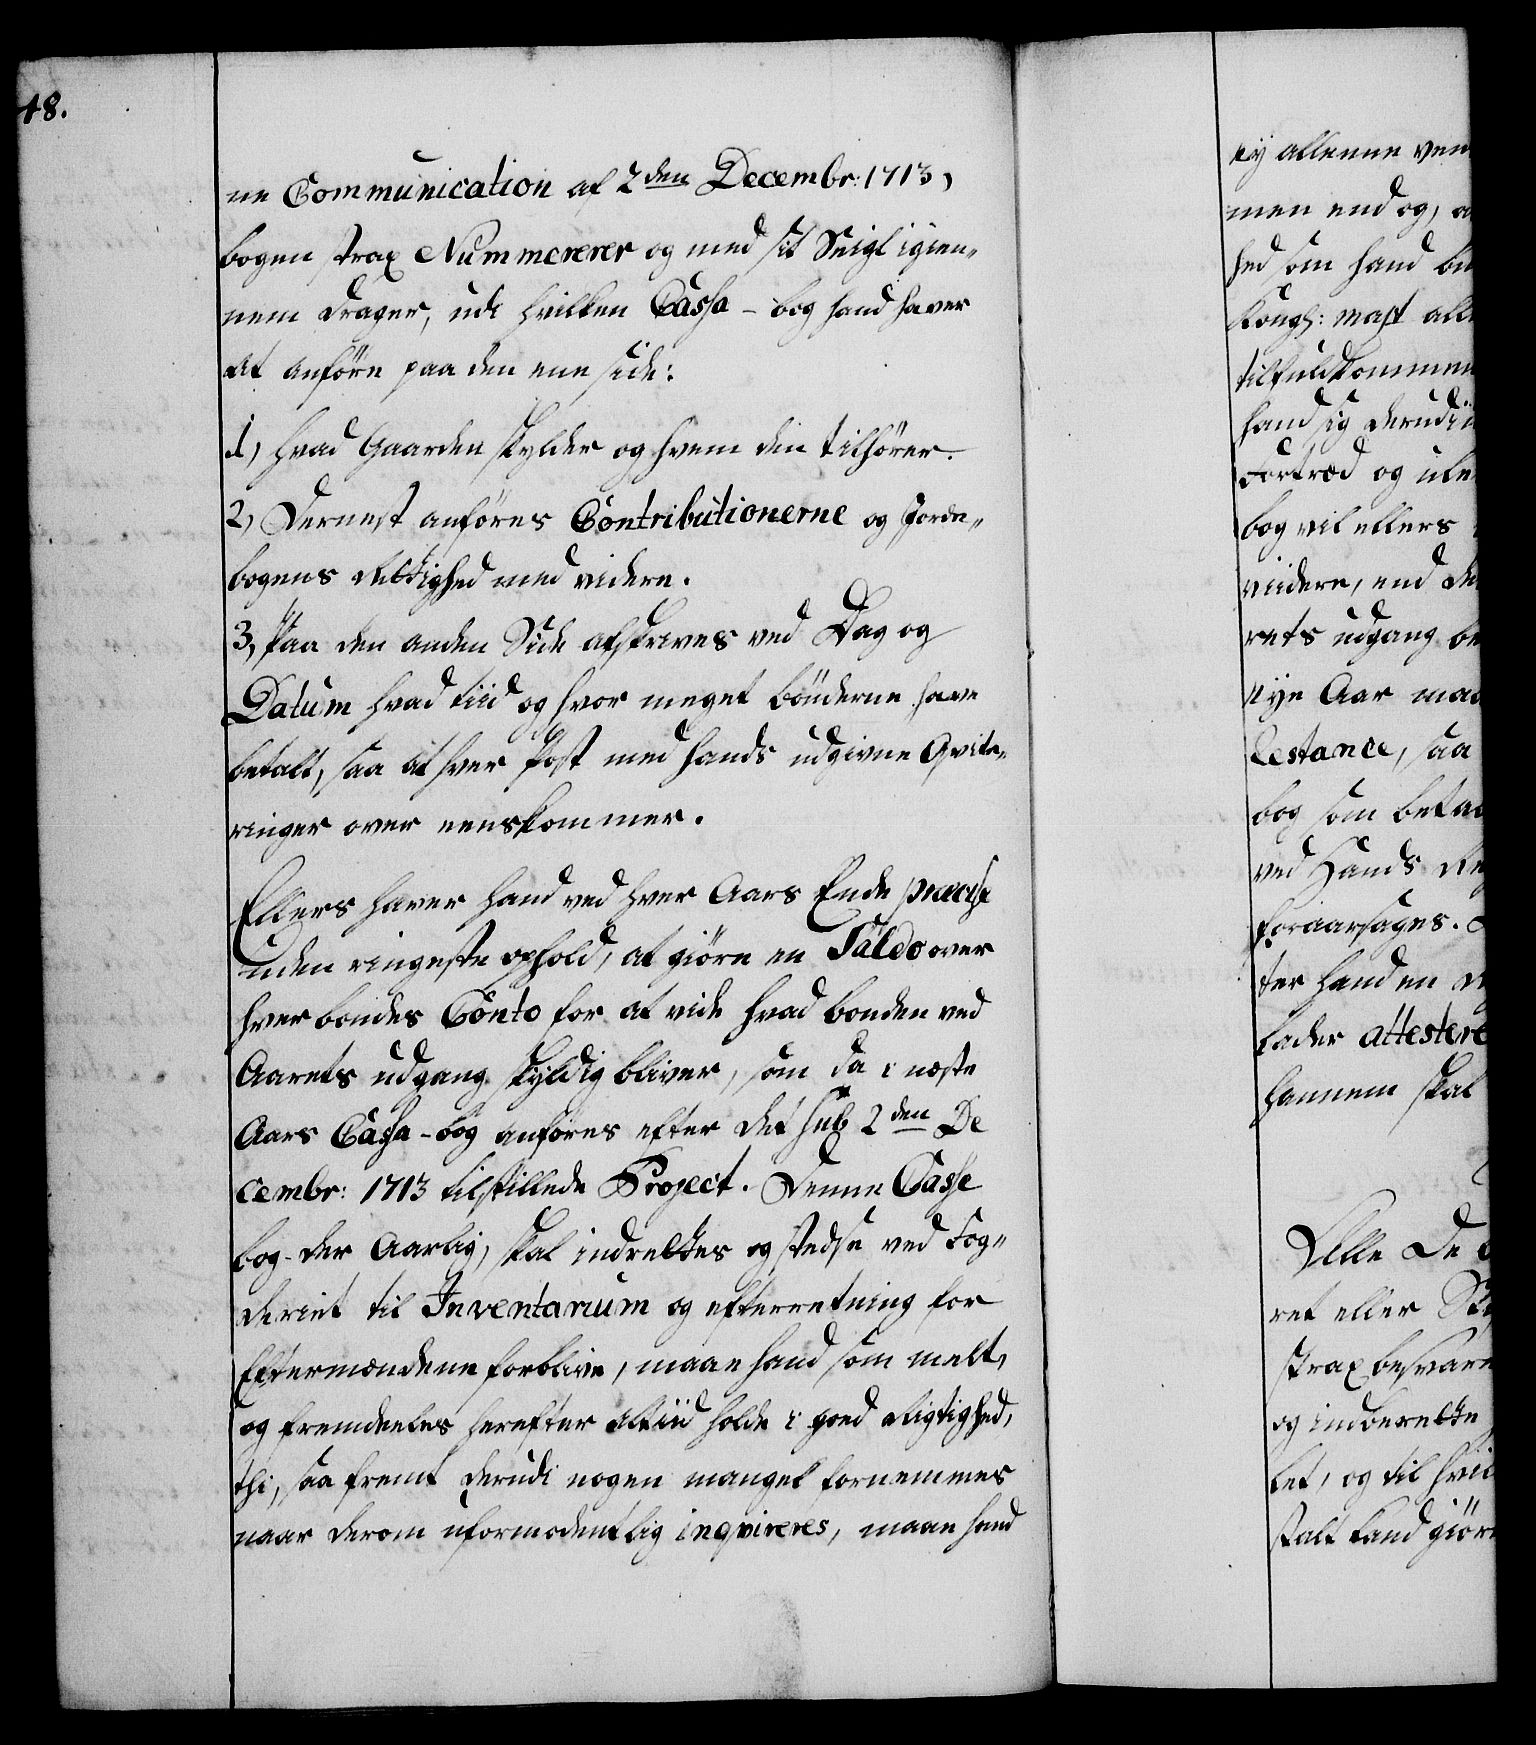 48.
ne Communication af 2den Decembr: 1713,
bogen strax Nummererer og med sit Seigl igien„
nem drager, udi hvilken Cassa-bog hand haver
at anføre paa den ene side:
1, hvad Gaarden skylder og hvem den tilhører.
2, Dernest anføres Contributionerne og Jorde„
bogens Rettighed med videre.
3, Paa den anden Side afskrives ved Dag og
Datum hvad tiid og hvor meget bønderne have
betalt, saa at hver Post med hands udgivne Qvite„
ringer over eenskommer.
Ellers haver hand ved hver Aars Ende præcise
uden ringeste ophold, at giøre en Saldo over
hver bondes Conto for at vide hvad bonden ved
Aarets udgang skyldig bliver, som da i næste
Aars Cassa-bog anføres efter det sub 2den De
cembr: 1713 tilstillede Project. Denne Casse
bog der Aarlig, skal indrettes og stedse ved Fog„
deriet til Inventarium og efterretning for
Eftermændene forblive, maae hand som melt,
og fremdeeles herefter altiid holde i goed Rigtighed,
thi, saa fremt derudi nogen mangel fornemmes
naar derom uformodentlig inqvireres, maae hand
ey alleene ven
men end og, a
hed som hand be
Kongl: Mayst all
tilfuldkommen
hand sig derudi
Fortræd og ule
bog vil ellers
viidere, end de
rets udgang be
Nye Aar maa
Restance, saa
bog som betal
ved Hands Re
foraarsages.
ter hand en
lader attestere
hannem skal
Alle De
ret eller
strax besvare
og indberette
let, og til hvil
stalt kand giøre